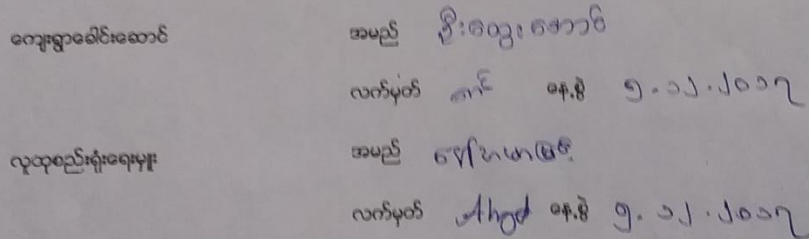 ကျေးရွာခေါင်းဆောင် အမည် ဦးထွေးအောင်
လက်မှတ် နေ့စွဲ ၅.၁၂.၂၀၁၇
လူထုစည်းရုံးရေးမှူး အမည်
လက်မှတ် နေ့စွဲ ၅.၁၂.၂၀၁၇